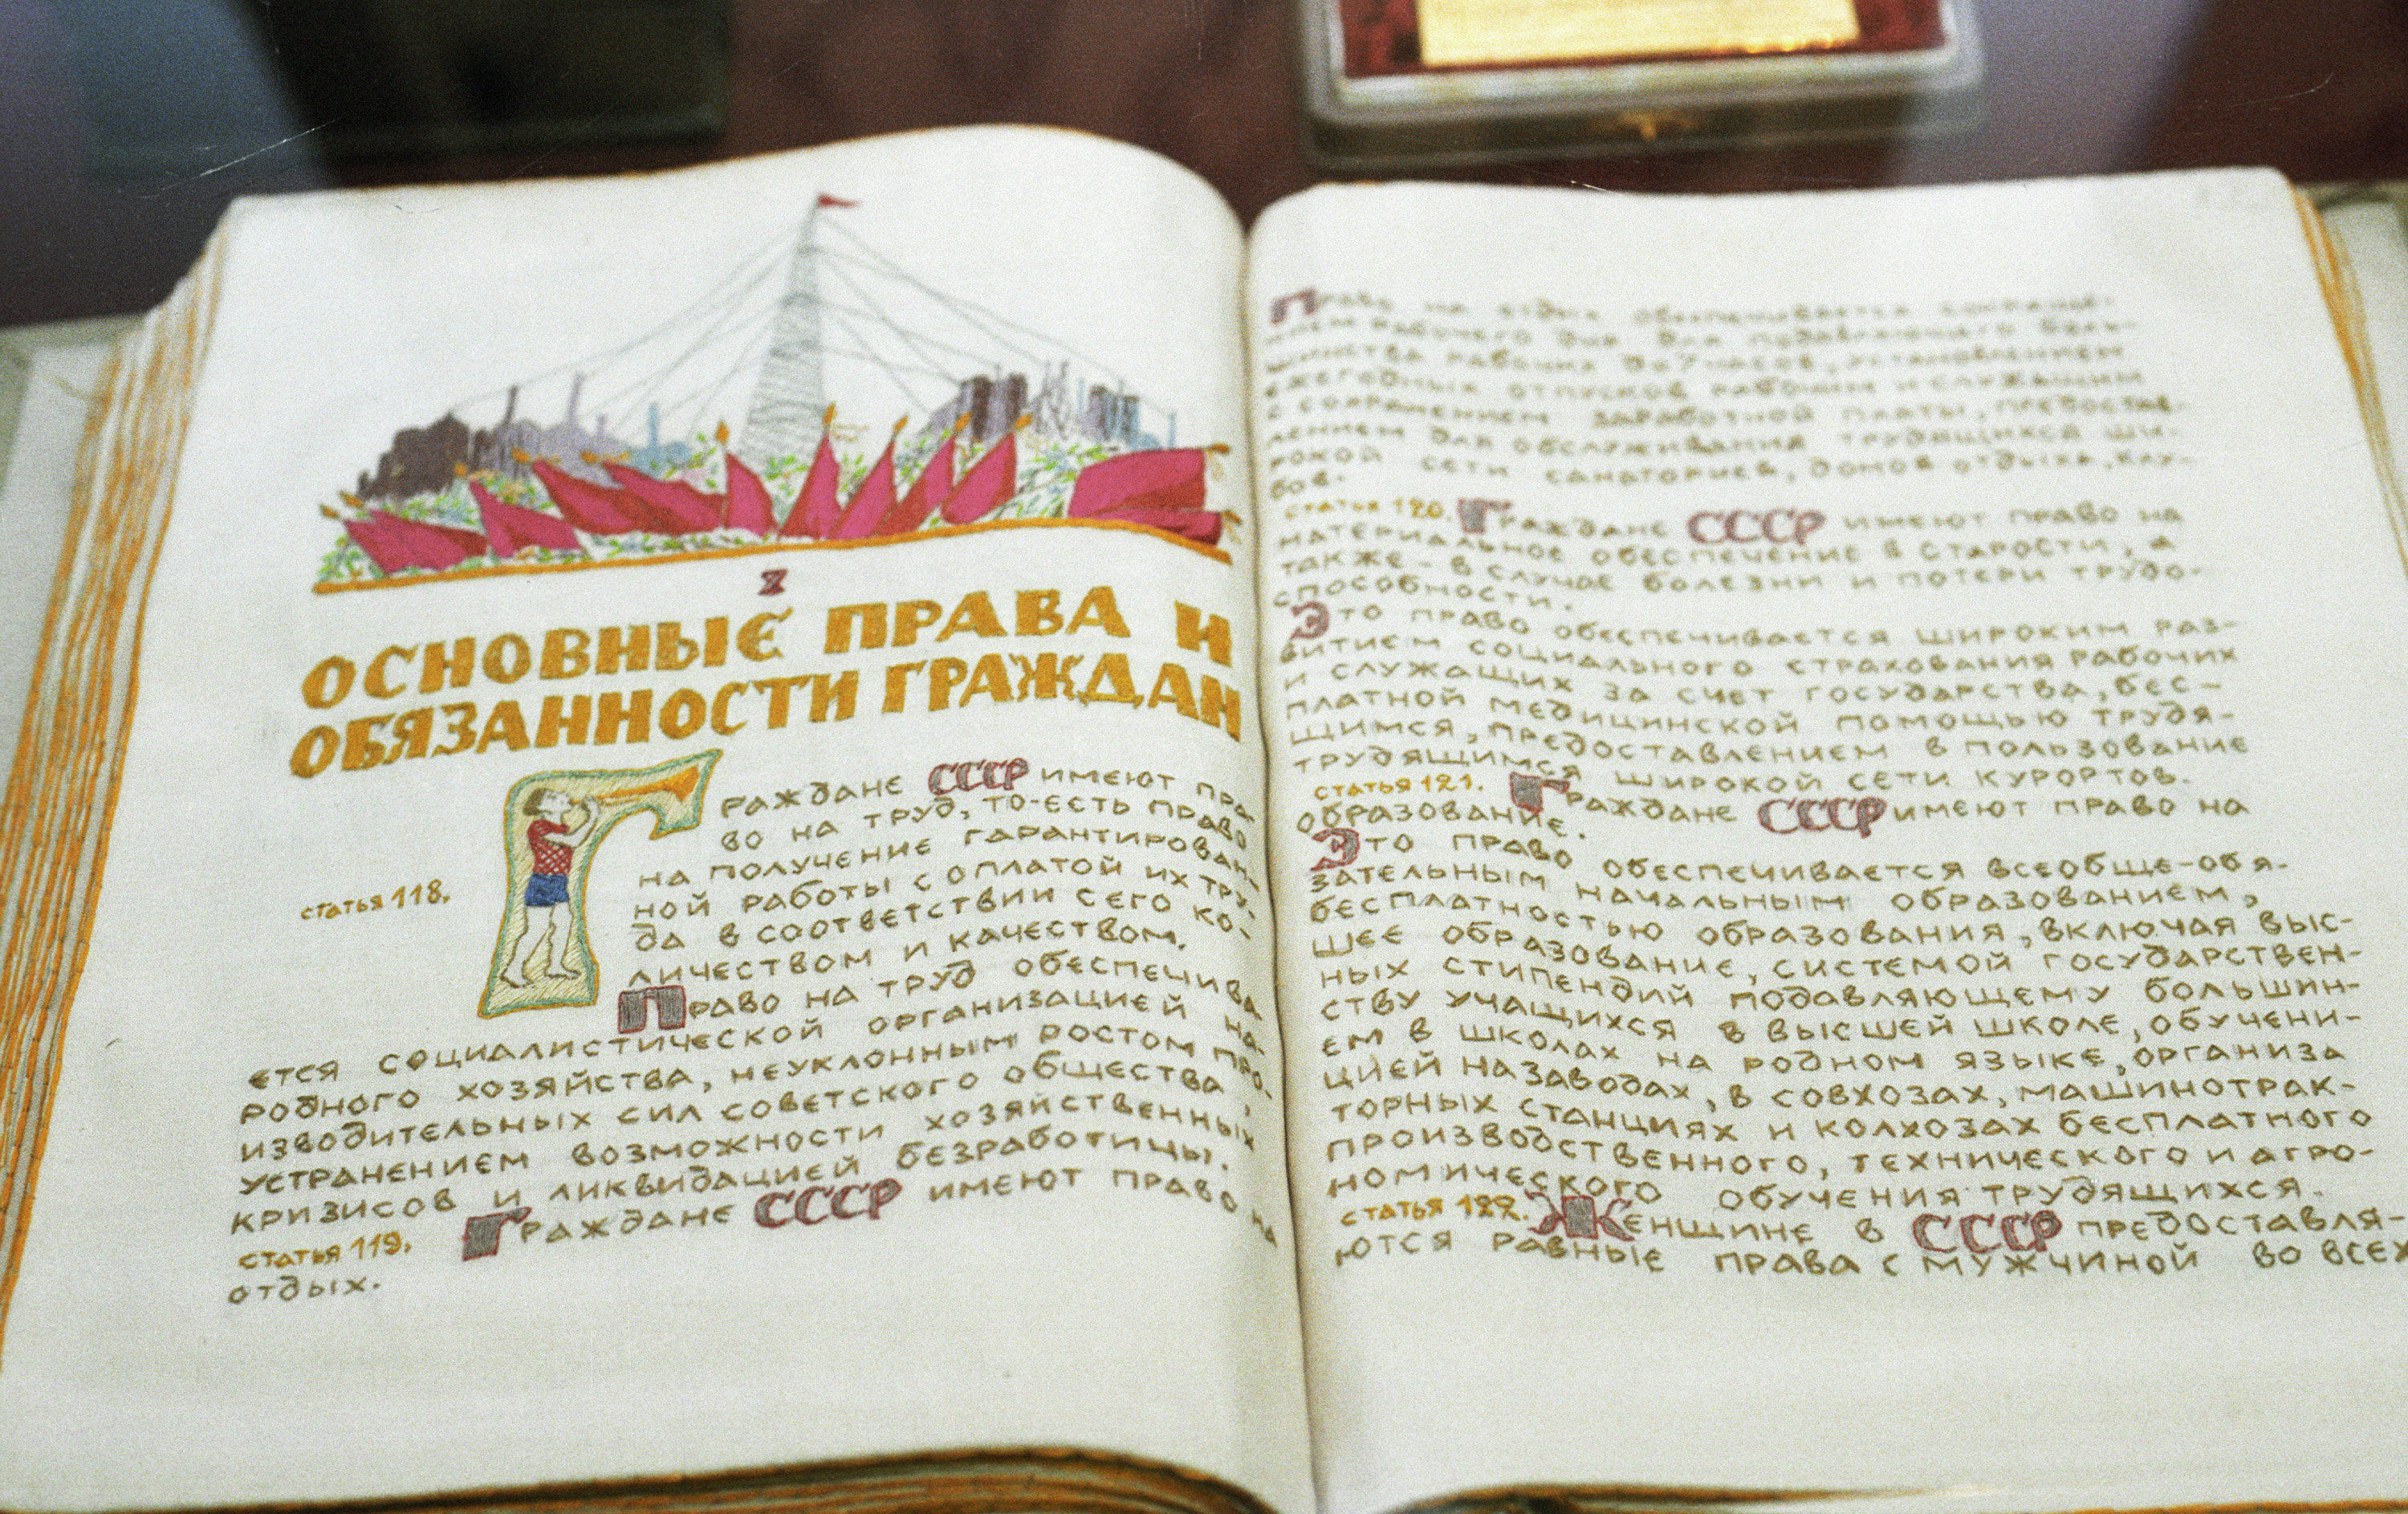 X
ОСНОВНЫЕ ПРАВА И
ОБЯЗАННОСТИ ГРАЖДАН
статья 118.
Граждане СССР имеют пра
во на труд, то-есть право
на получение гарантирован-
ной работы с оплатой их тру-
да в соответствии с его ко-
личеством и качеством.
Право на труд обеспечива
ется социалистической организацией на-
родного хозяйства, неуклонным ростом про-
изводительных сил советского общества,
устранением возможности хозяйственных
кризисов и ликвидацией безработицы.
статья 119. Граждане СССР имеют право на
отдых.
Право на отдых обеспечивается сокраще-
нием рабочего дня для подавляющего боль-
шинства рабочих до 7 часов, установлением
ежегодных отпусков рабочим и служащим
с сохранением заработной платы, предостав-
лением для обслуживания трудящихся ши-
рокой сети санаториев, домов отдыха, клу-
бов.
статья 120. Граждане СССР имеют право на
материальное обеспечение в старости, а
также - в случае болезни и потери трудо-
способности.
Это право обеспечивается широким раз-
витием социального страхования рабочих
и служащих за счет государства, бес-
платной медицинской помощью трудя-
щимся, предоставлением в пользование
трудящимся широкой сети курортов.
статья 121. Граждане СССР имеют право на
образование.
Это право обеспечивается всеобще-обя-
зательным начальным образованием,
бесплатностью образования, включая выс-
шее образование, системой государствен-
ных стипендий подавляющему большин-
ству учащихся в высшей школе, обучени-
ем в школах на родном языке, организа
цией на заводах, в совхозах, машинотрак-
торных станциях и колхозах бесплатного
производственного, технического и агро-
номического обучения трудящихся.
статья 122. Женщине в СССР предоставля-
ются равные права с мужчиной во всех